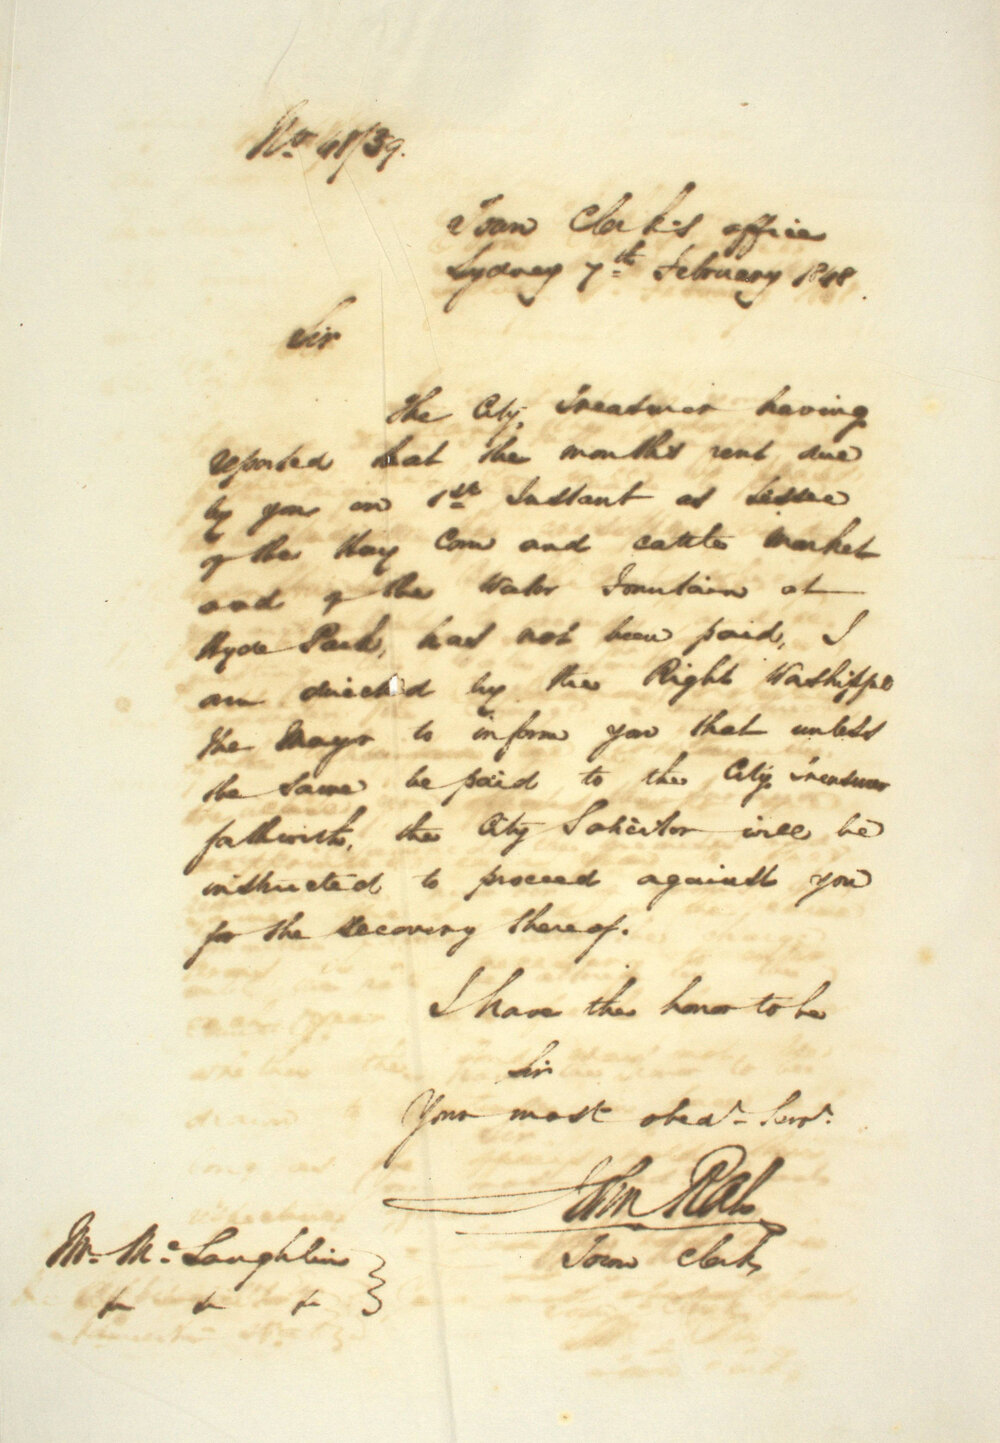 No. 48/39.
Town Clerk's office
Sydney 7th February 1848.
Sir
The City Treasurer having
reported that the months rent due
by you on 1st Instant as Lessee
of the Hay Corn and cattle Market
and of the Water Fountain at
Hyde Park, has not been paid, I
am directed by the Right Worshipful
the Mayor to inform you that unless
the same be paid to the City Treasurer
forthwith, the City Solicitor will be
instructed to proceed against you
for the recovery thereof.
I have the honor to be
Sir
Your most obedt. Servt.
John Rae
Town Clerk
Mr. McLaughlin